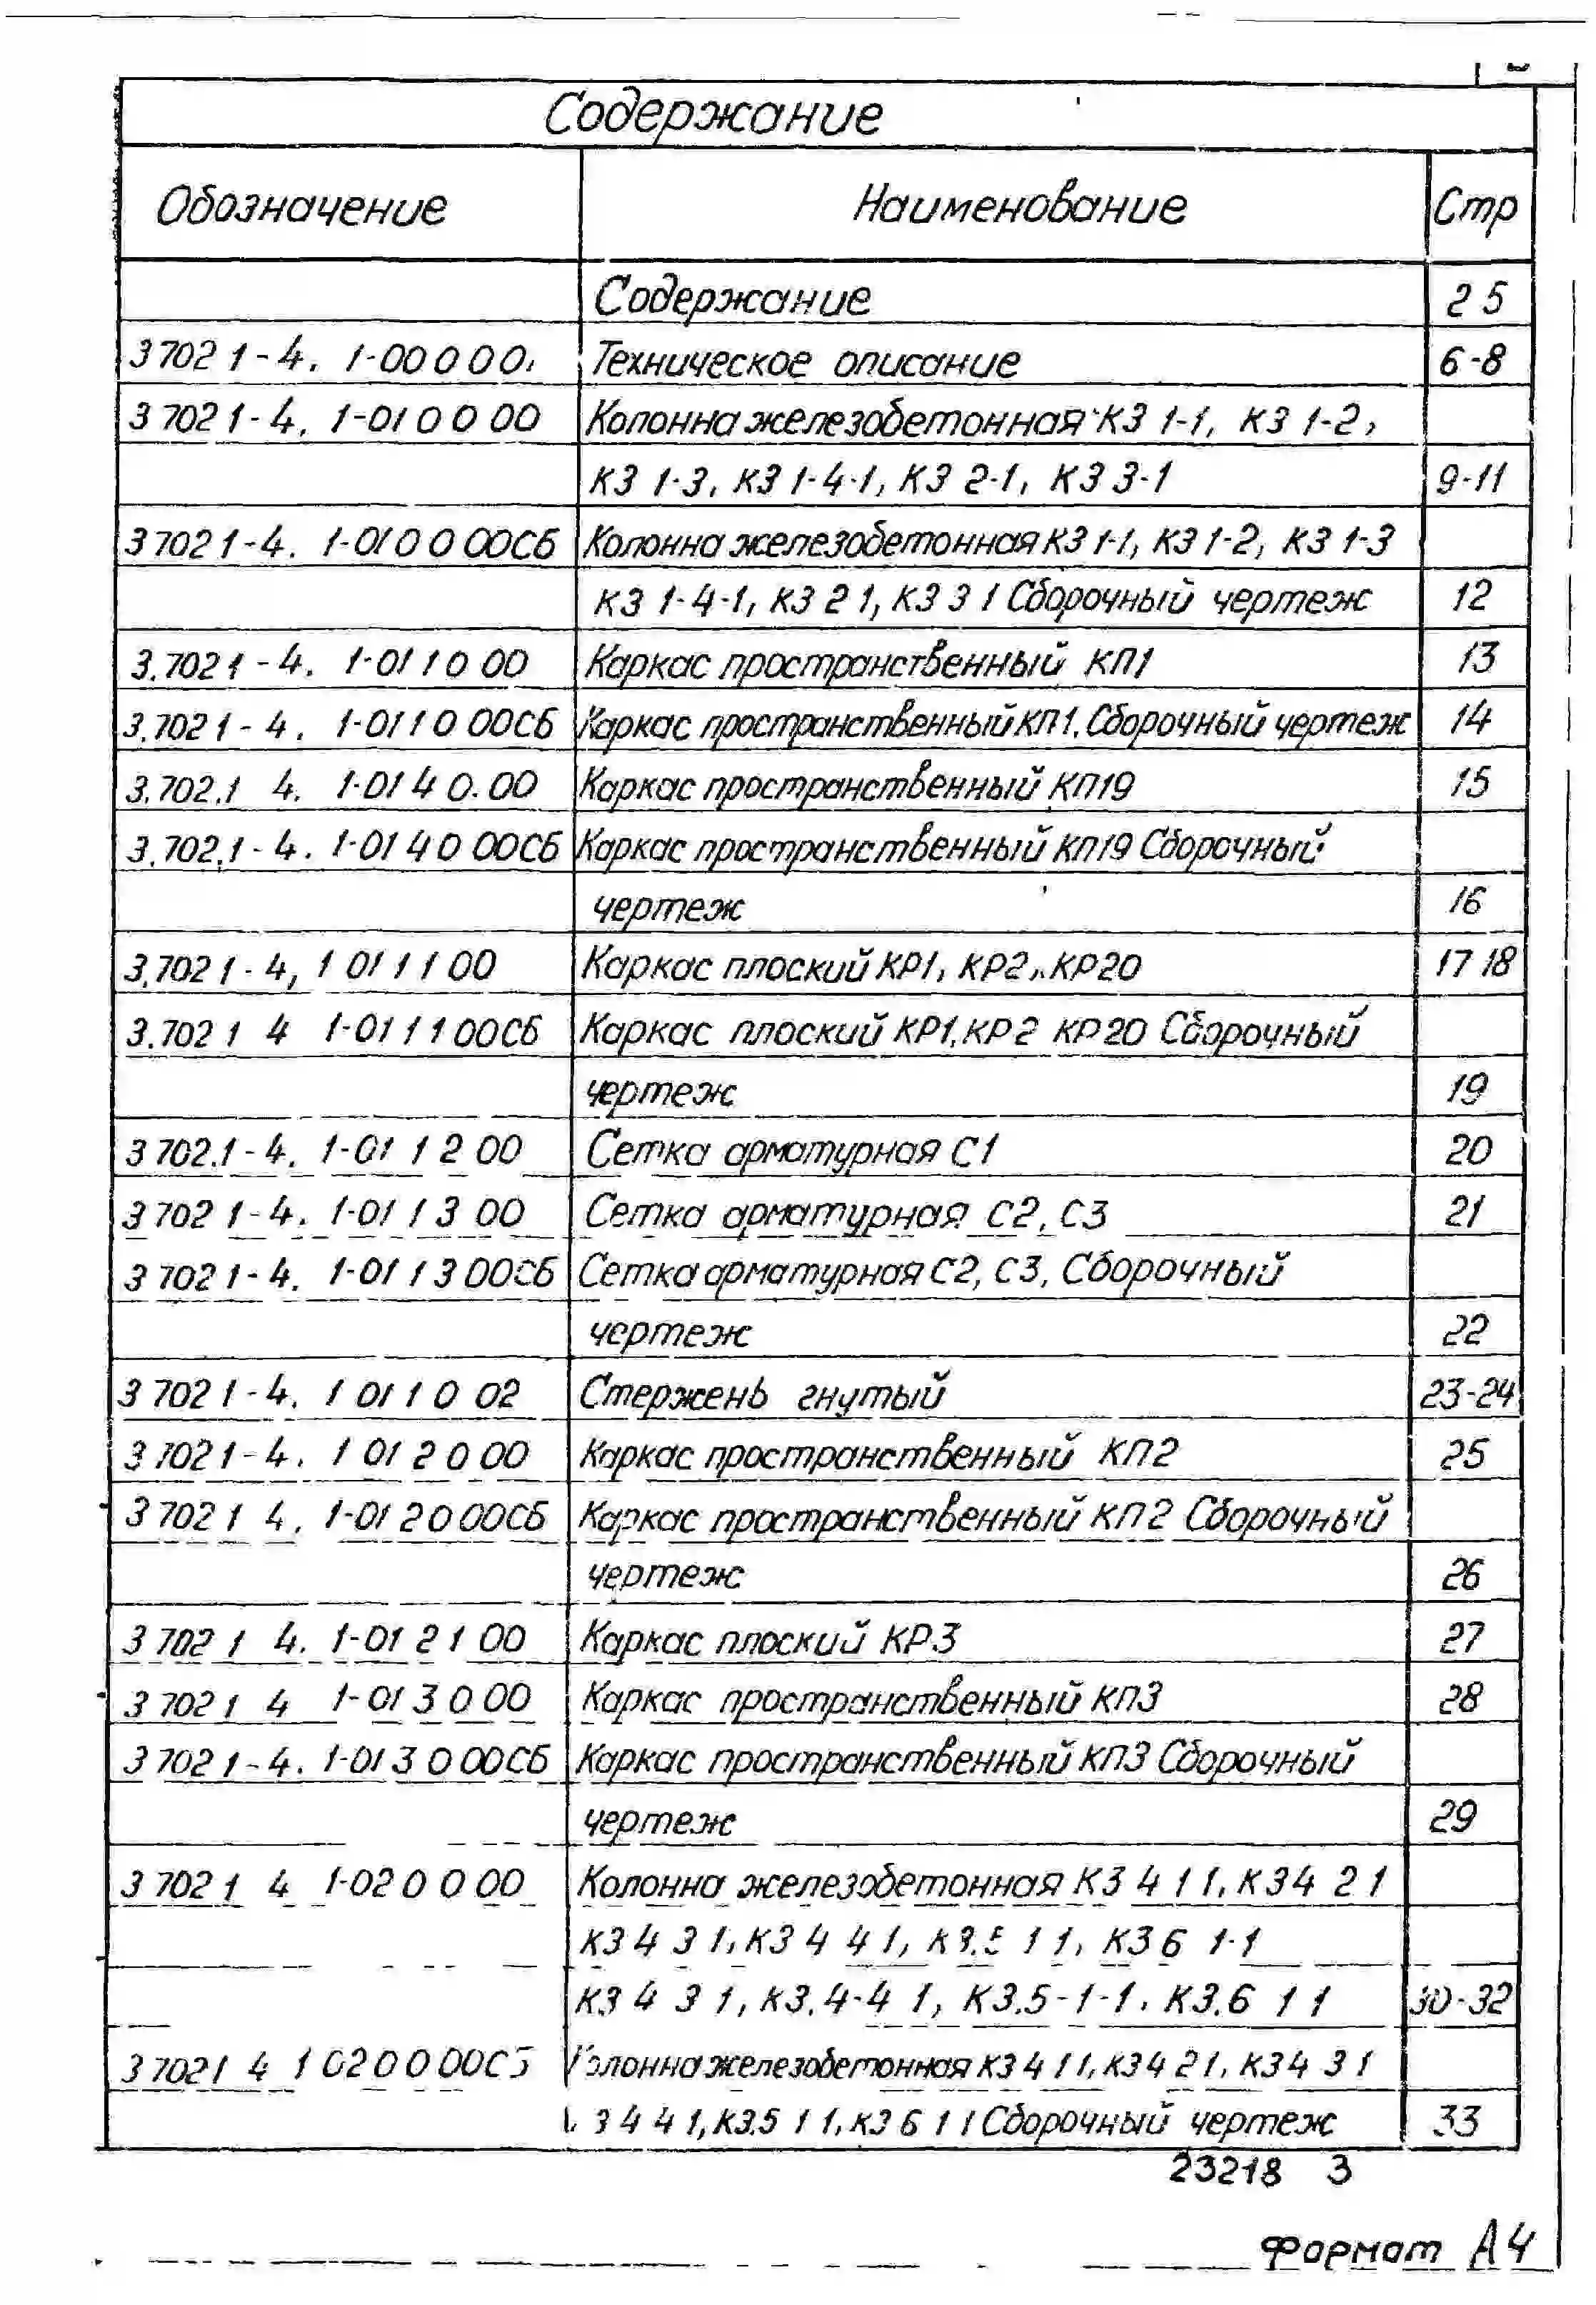 Содержание
Обозначение Наименование Стр
Содержание 2 5
3 702 1-4. 1-00 0 0 0. Техническое описание 6-8
3 702 1-4. 1-01 0 0 00 Колонна железобетонная КЗ 1-1, КЗ 1-2,
КЗ 1-3, КЗ 1-4-1, КЗ 2-1, КЗ 3-1 9-11
3 702 1-4. 1-01 0 0 00СБ Колонна железобетонная КЗ 1-1, КЗ 1-2, КЗ 1-3
КЗ 1-4-1, КЗ 2 1, КЗ 3 1 Сборочный чертеж 12
3.702 1-4. 1-01 1 0 00 Каркас пространственный КП1 13
3.702 1-4. 1-01 1 0 00СБ Каркас пространственный КП1. Сборочный чертеж 14
3.702.1 4. 1-01 4 0.00 Каркас пространственный КП19 15
3.702.1-4. 1-01 4 0 00СБ Каркас пространственный КП19 Сборочный
чертеж 16
3.702 1-4, 1 01 1 1 00 Каркас плоский КР1, КР2, КР20 17 18
3.702 1 4 1-01 1 1 00СБ Каркас плоский КР1, КР2 КР20 Сборочный
чертеж 19
3 702.1-4. 1-01 1 2 00 Сетка арматурная С1 20
3 702 1-4. 1-01 1 3 00 Сетка арматурная С2, С3 21
3 702 1-4. 1-01 1 3 00СБ Сетка арматурная С2, С3, Сборочный
чертеж 22
3 702 1-4. 1 01 1 0 02 Стержень гнутый 23-24
3 702 1-4. 1 01 2 0 00 Каркас пространственный КП2 25
3 702 1 4. 1-01 2 0 00СБ Каркас пространственный КП2 Сборочный
чертеж 26
3 702 1 4. 1-01 2 1 00 Каркас плоский КР3 27
3 702 1 4 1-01 3 0 00 Каркас пространственный КП3 28
3 702 1-4. 1-01 3 0 00СБ Каркас пространственный КП3 Сборочный
чертеж 29
3 702 1 4 1-02 0 0 00 Колонна железобетонная КЗ 4 1 1, КЗ 4 2 1
КЗ 4 3 1, КЗ 4 4 1, КЗ.5 1 1, КЗ 6 1-1
КЗ 4 3 1, КЗ.4-4 1, КЗ.5-1-1, КЗ.6 1 1 30-32
3 702 1 4 1 02 0 0 00СБ Колонна железобетонная КЗ 4 1 1, КЗ 4 2 1, КЗ 4 3 1
КЗ 4 4 1, КЗ.5 1 1, КЗ 6 1 1 Сборочный чертеж 33
23218 3
Формат А4